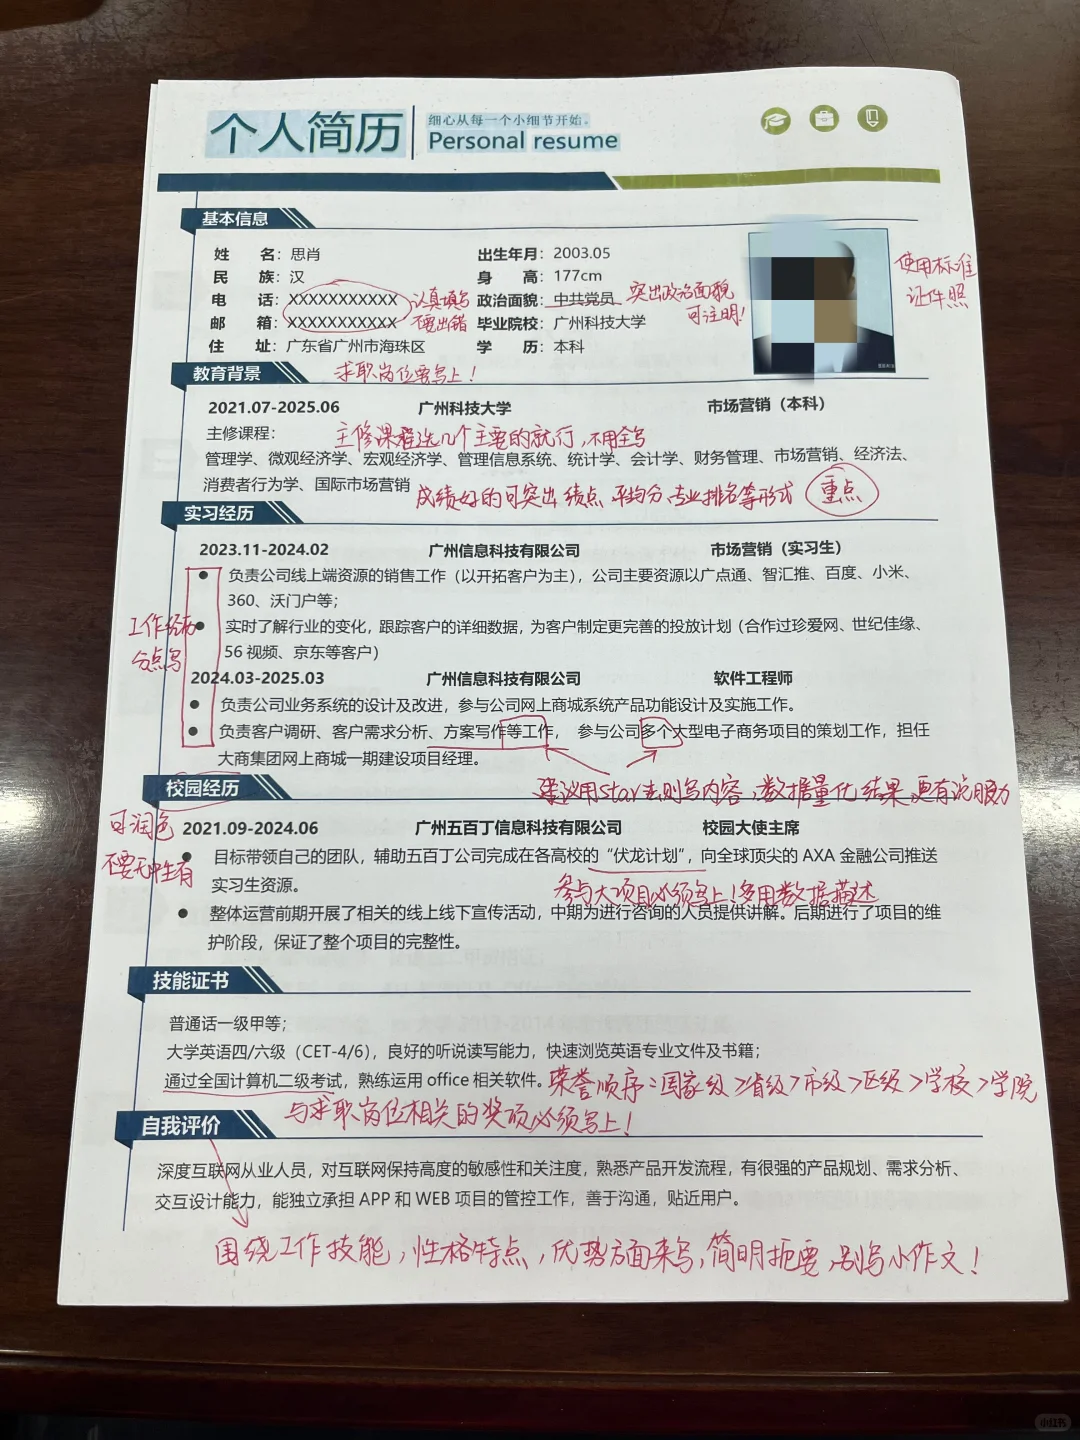 个人简历
细心从每一个小细节开始。
Personal resume
基本信息
姓 名：思肖 出生年月：2003.05
使用标准
证件照
民 族：汉 身 高：177cm
电 话：XXXXXXXXXXX 认真填写 政治面貌：中共党员 突出政治面貌
可注明！
邮 箱：XXXXXXXXXXX 不要出错 毕业院校：广州科技大学
住 址：广东省广州市海珠区 学 历：本科
教育背景 求职岗位要写上！
2021.07-2025.06 广州科技大学 市场营销（本科）
主修课程： 主修课程选几个主要的就行，不用全写
管理学、微观经济学、宏观经济学、管理信息系统、统计学、会计学、财务管理、市场营销、经济法、
消费者行为学、国际市场营销 成绩好的可突出 绩点 平均分 专业排名等形式 重点
实习经历
2023.11-2024.02 广州信息科技有限公司 市场营销（实习生）
负责公司线上端资源的销售工作（以开拓客户为主），公司主要资源以广点通、智汇推、百度、小米、
360、沃门户等；
工作经历
分点写
实时了解行业的变化，跟踪客户的详细数据，为客户制定更完善的投放计划（合作过珍爱网、世纪佳缘、
56 视频、京东等客户）
2024.03-2025.03 广州信息科技有限公司 软件工程师
负责公司业务系统的设计及改进，参与公司网上商城系统产品功能设计及实施工作。
负责客户调研、客户需求分析、方案写作等工作， 参与公司多个大型电子商务项目的策划工作，担任
大商集团网上商城一期建设项目经理。
建议用star法则写内容，数据量化结果更有说服力
校园经历
可润色
不要无中生有
2021.09-2024.06 广州五百丁信息科技有限公司 校园大使主席
目标带领自己的团队，辅助五百丁公司完成在各高校的“伏龙计划”，向全球顶尖的 AXA 金融公司推送
实习生资源。
参与大项目必须写上！多用数据描述
整体运营前期开展了相关的线上线下宣传活动，中期为进行咨询的人员提供讲解。后期进行了项目的维
护阶段，保证了整个项目的完整性。
技能证书
普通话一级甲等；
大学英语四/六级（CET-4/6），良好的听说读写能力，快速浏览英语专业文件及书籍；
通过全国计算机二级考试，熟练运用 office 相关软件。 荣誉顺序：国家级>省级>市级>区级>学校>学院
与求职岗位相关的奖项必须写上！
自我评价
深度互联网从业人员，对互联网保持高度的敏感性和关注度，熟悉产品开发流程，有很强的产品规划、需求分析、
交互设计能力，能独立承担 APP 和 WEB 项目的管控工作，善于沟通，贴近用户。
围绕工作技能，性格特点，优势方面来写，简明扼要，别写小作文！
小红书